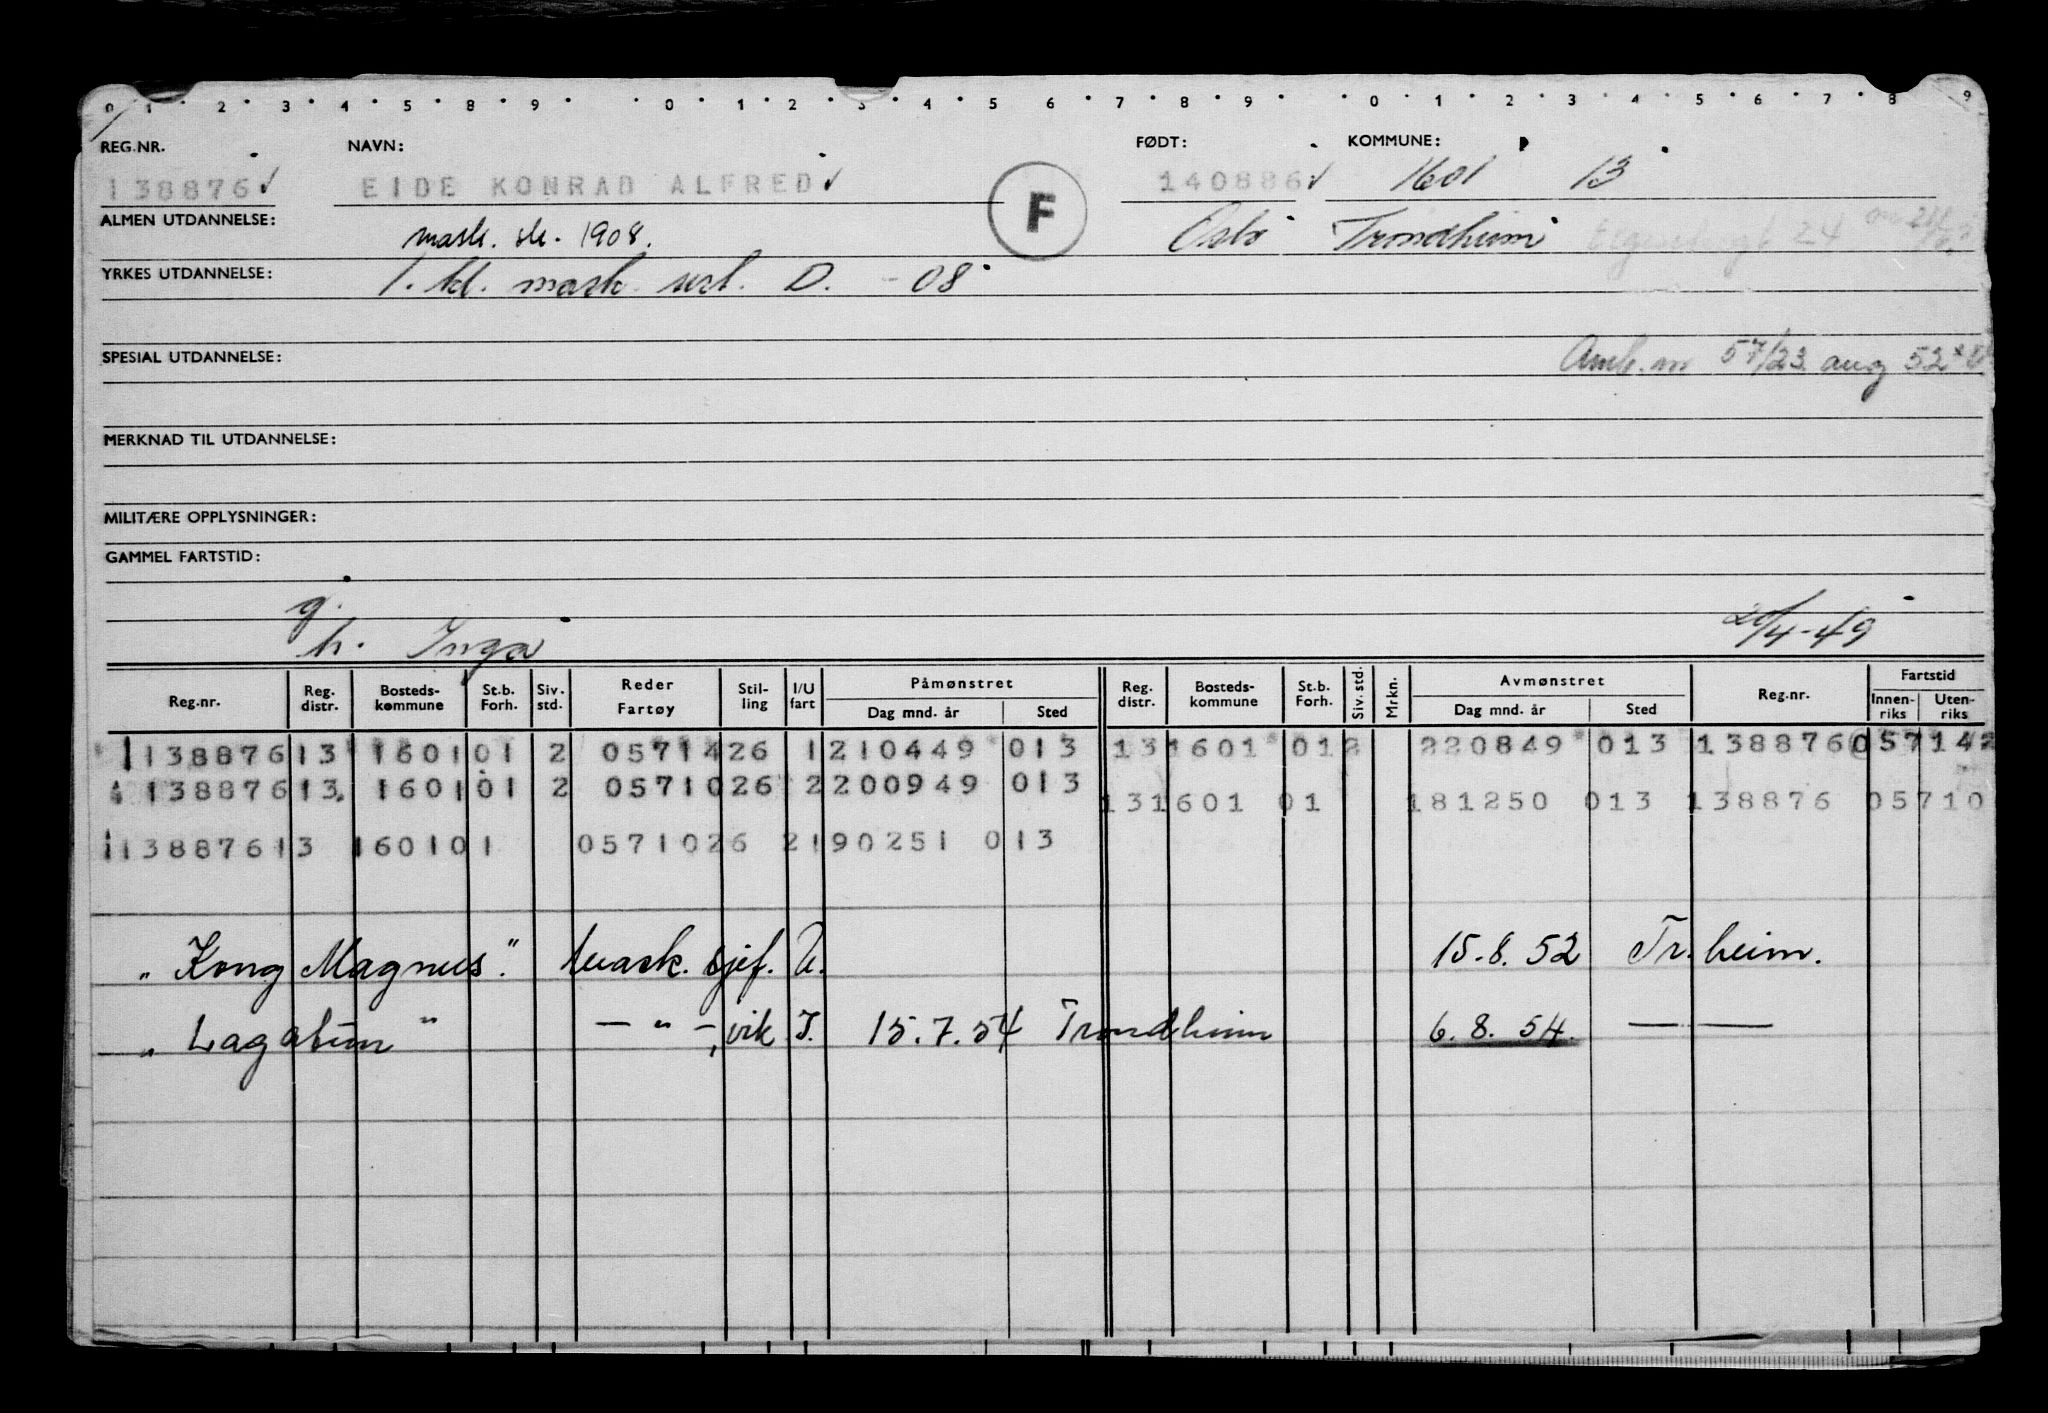 0 1 2 3 4 5 8 9 0 1 2 3 4 5 6 7 8 9 0 1 2 3 4 5 6 7 8 9
REG.NR. NAVN: FØDT: KOMMUNE:
138876 EIDE KONRAD ALFRED F 140886 1601 13
ALMEN UTDANNELSE: mask. sk. 1908. Oslo Trondheim 24
YRKES UTDANNELSE: 1. kl. mask. sert. D. - 08
SPESIAL UTDANNELSE: 57/23 aug 52
MERKNAD TIL UTDANNELSE:
MILITÆRE OPPLYSNINGER:
GAMMEL FARTSTID:
g.
h. Inga 20/4-49
Reg.nr. Reg. distr. Bosteds-kommune St.b. Forh. Siv. std. Reder Fartøy Stil-ling I/U fart Påmønstret Dag mnd. år Sted Reg. distr. Bosteds-kommune St.b. Forh. Siv. std. Mrkn. Avmønstret Dag mnd. år Sted Reg.nr. Fartstid Innen-riks Uten-riks
1 138876 13 1601 01 2 05714 26 1 210449 013 13 1601 01 2 220849 013 138876 05714 2
138876 13 1601 01 2 05710 26 2 200949 013 13 1601 01 181250 013 138876 05710
1 138876 13 1601 01 05710 26 2 190251 013
„Kong Magnus." Mask. sjef. U. 15.8.52 Tr.heim.
„Lagatun" — " —, vik I. 15.7.54 Trondheim 6.8.54. — —